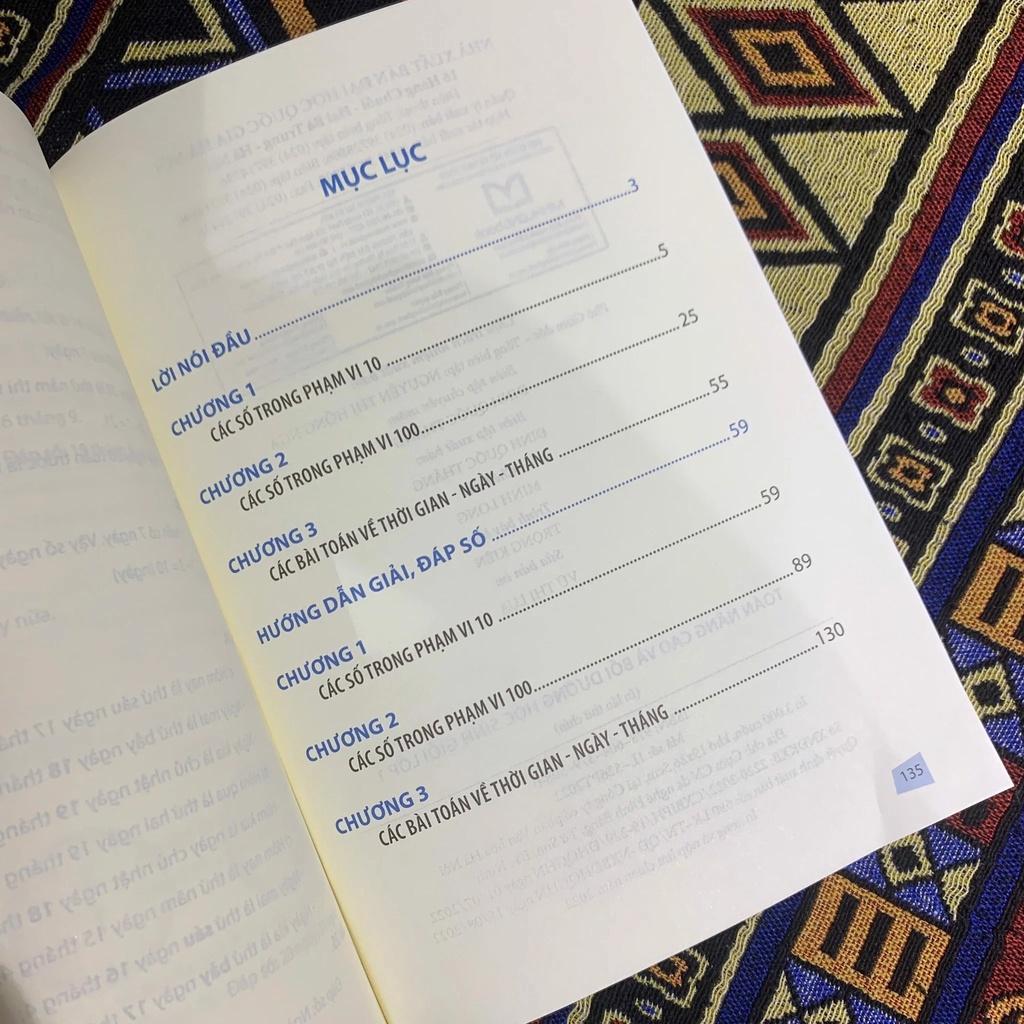 MỤC LỤC
LỜI NÓI ĐẦU ... 3
CHƯƠNG 1
CÁC SỐ TRONG PHẠM VI 10 ... 5
CHƯƠNG 2
CÁC SỐ TRONG PHẠM VI 100 ... 25
CHƯƠNG 3
CÁC BÀI TOÁN VỀ THỜI GIAN - NGÀY - THÁNG ... 55
HƯỚNG DẪN GIẢI, ĐÁP SỐ ... 59
CHƯƠNG 1
CÁC SỐ TRONG PHẠM VI 10 ... 59
CHƯƠNG 2
CÁC SỐ TRONG PHẠM VI 100 ... 89
CHƯƠNG 3
CÁC BÀI TOÁN VỀ THỜI GIAN - NGÀY - THÁNG ... 130
135